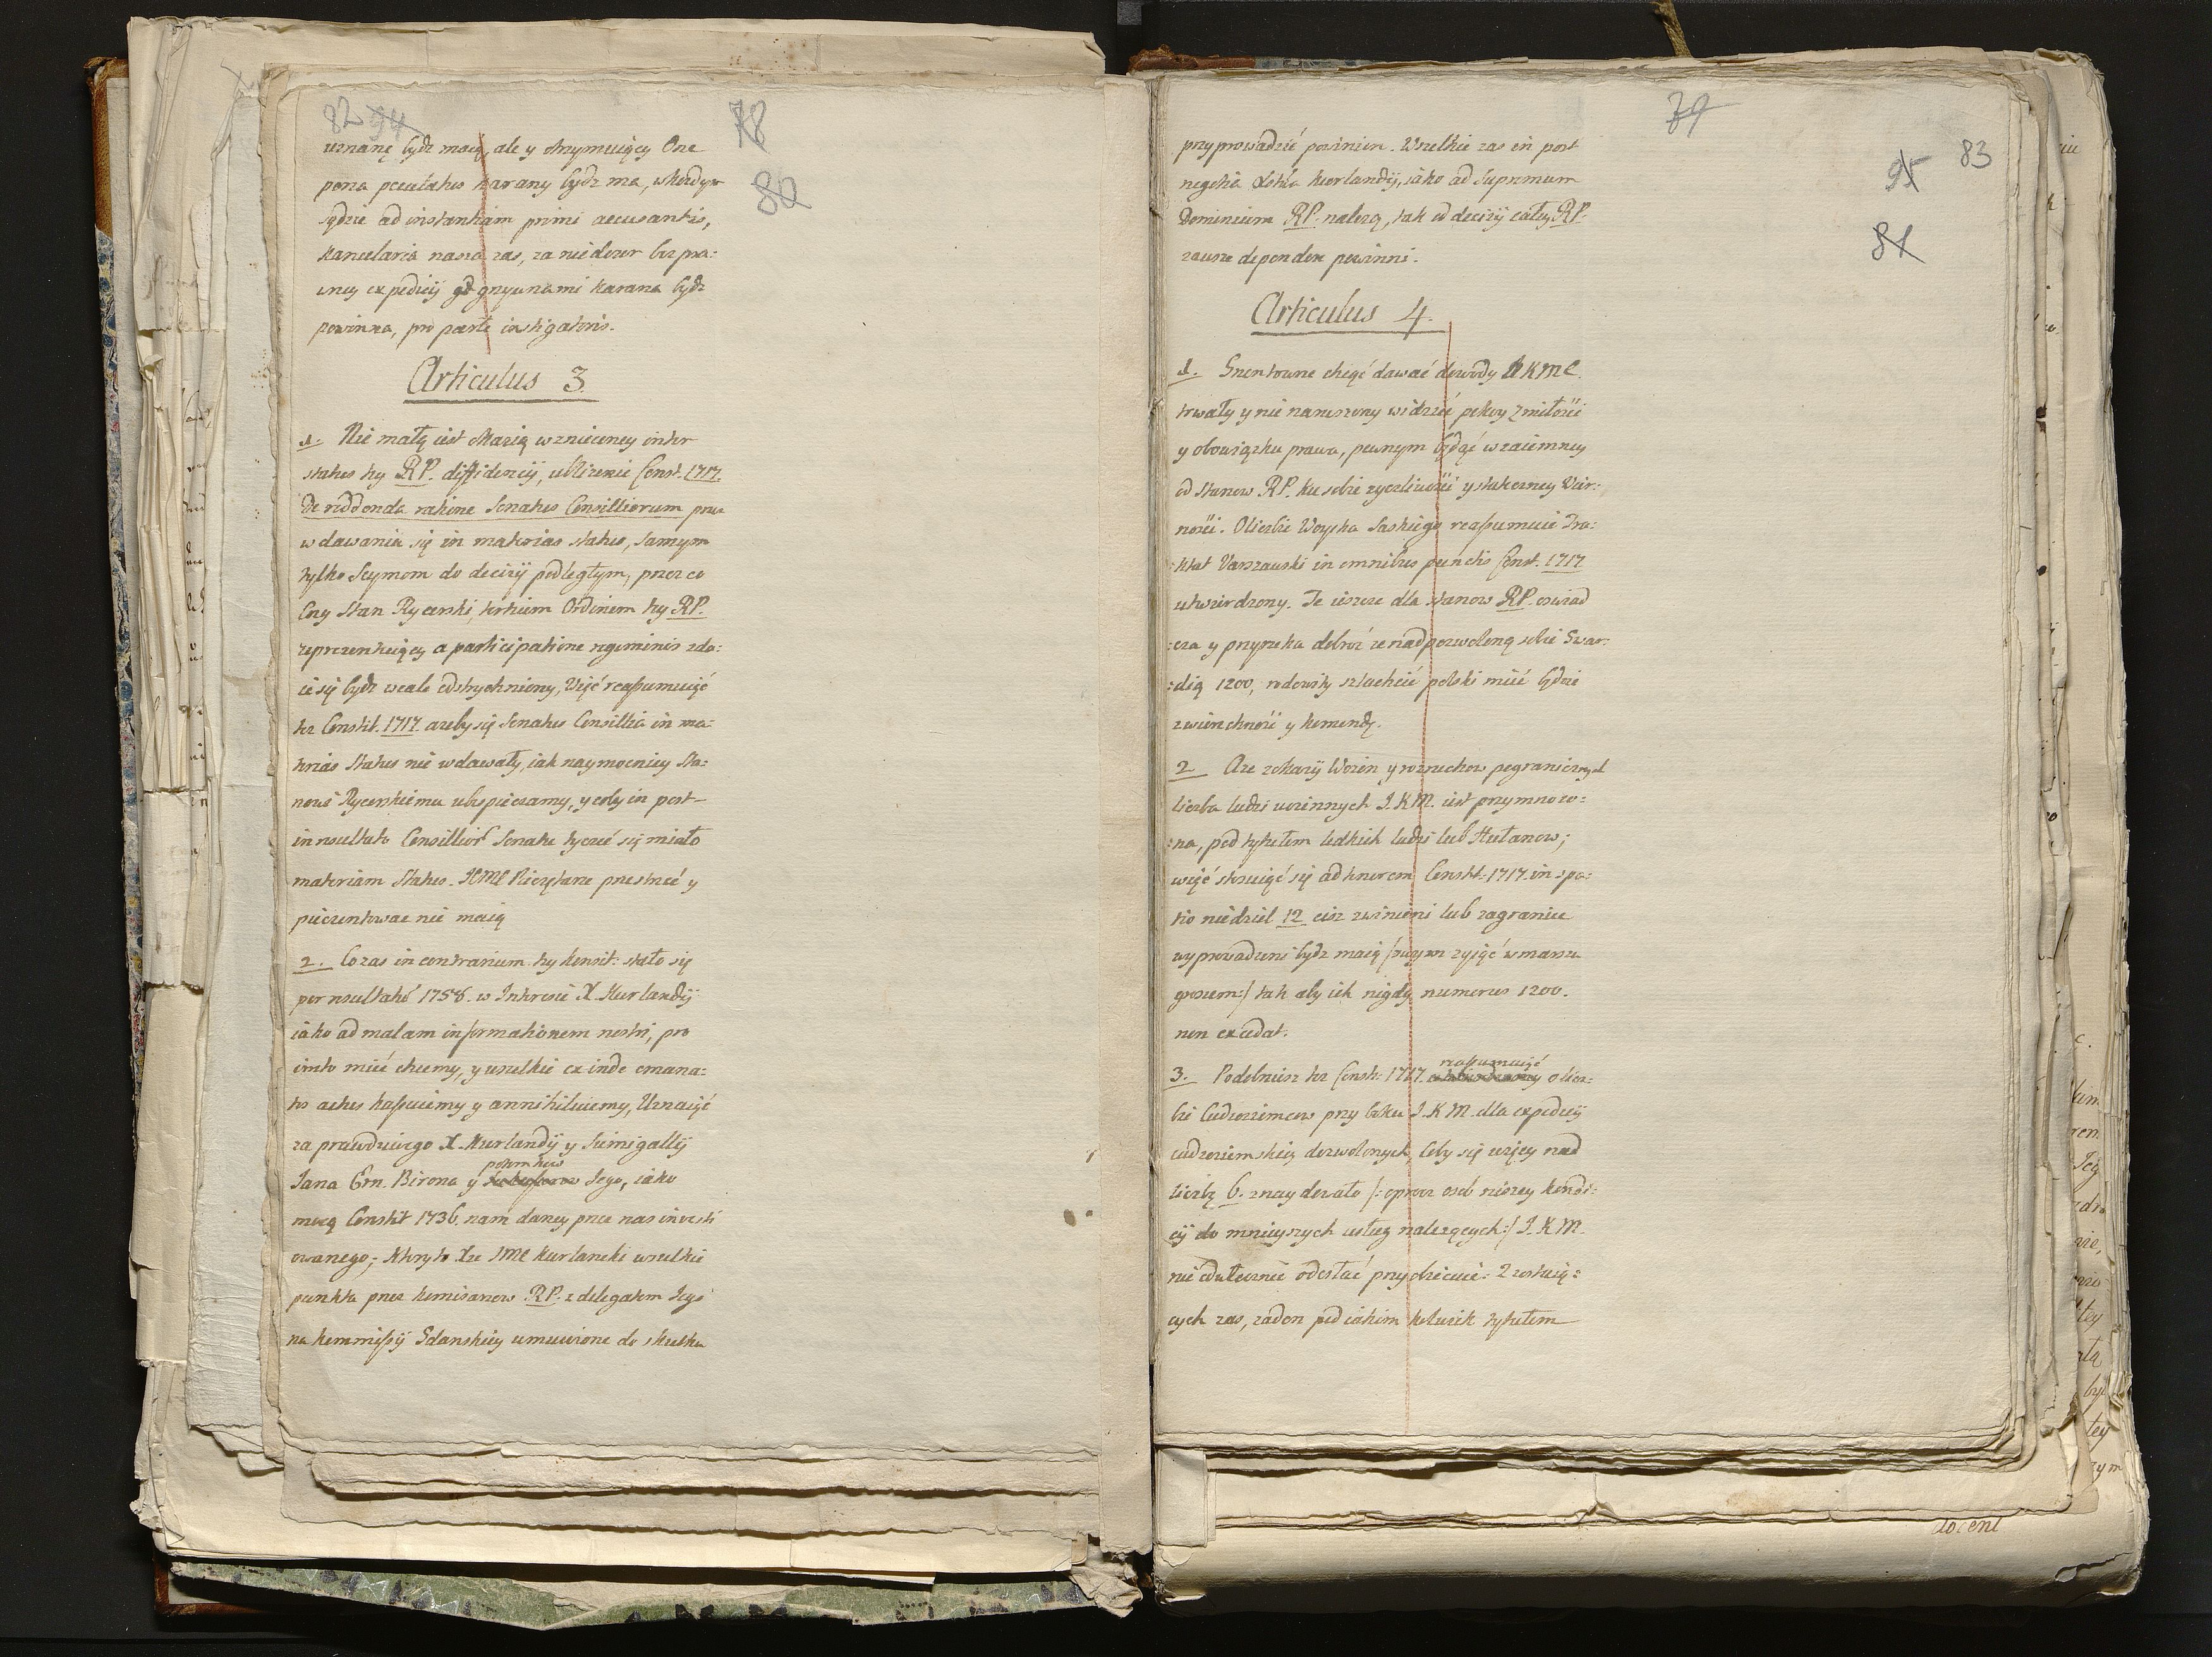 82 94 78
80
uznanę bydz maią, ale y otrzymuiący One
poena peculatus karany bydz ma, w kożdym
sądzie ad instantiam primi accusantis,
kancelaria nasza zas, za niedozor bez pra:
wney expedicij grzywnami karana bydz
powinna, pro parte instigatoris.
Articulus 3
1. Nie małą iest okazią wznieconey inter
status tey RP. diffidencij, ubliżenie Const. 1717.
De reddenda ratione Senatus Consilliorum przez
wdawania się in materias status, samym
tylko Seymom do decizij podległym, przez co
Cny Stan Rycerski, tertium Ordinem tey RP.
reprezentuiący a participatione regiminis zda:
ie się bydz wcale odstrychniony, Więc reassumuiąc
tez Constit. 1717. azeby się Senatus Consillia in ma:
terias status nie wdawały, iak naymocniey Sta:
nowi Rycerskiemu ubespieczamy, y coby in post
in resultato Consillior Senatu tyczeć się miało
materiam status. JEMC Pieczętarze przestrzec y
pieczentowac nie maią
2. Co zas in contrarium tey konstit: stało się
per resultatū 1758. w Interesie X. Kurlandij
iako ad malam informationem nostri, pro
irrito mieć chcemy, y wszelkie exinde emana:
tos actus kassuiemy y annihiluiemy, Uznaiąc
za prawdziwego X. Kurlandij y Semigallij
Jana Ern. Birona y potomkow Jego, iako
mocą Constit 1736. nam daney przez nas inwesti
owanego; Ktory to Xze JMC Kurlancki wszelkie
punkta przez komisarzow RP. z delegatem Jego
na kommissij Gdanskiey umuwione do skutku
79
95 83
81
przyprowadzić powinien. Wszelkie zas in post
negotia Xstwa kurlandij, iako ad supremum
Dominium RP. nalezą, tak od decizij całey RP.
zawsze dependere powinni.
Articulus 4.
1. Gruntowne chcąc dawać dowody JKMC.
trwały y nie naruszony widzieć pokoy z miłosci
y obowiązku prawa, pewnym będąc wzaiemney
od stanow RP. ku sobie zyczliwosci y stateczney Wier:
nosci. O liczbie Woyska Saskiego reassumuie Tra:
:ktat Warszawski in omnibus punctis Const. 1717
utwierdzony. Te ieszcze dla stanow RP. oswiad
:cza y przyrzeka dobroć ze nad pozwoloną sobie Gwar:
:dią 1200, rodowity szlachcic polski mieć będzie
zwierzchnosci y komendę.
2. Aze z okazij Woien y rozruchow pogranicznych
liczba ludzi woiennych J.K.M. iest przymnozo:
:na, pod tytułem letkich ludzi lub Hułanow;
więc stosuiąc się ad tenorem Constit: 1717. in spa:
tio niedziel 12 ciez zwinieni lub zagranice
wyprowadzeni bydz maią /: swoym zyiąc w marszu
groszem:/ tak aby ich nigdy numerus 1200.
non excedat.
3. Podobniesz tez Const. 1717. reassumuiąc o licz:
bie Cudzoziemcow przy boku J.K.M. dla expedicij
cudzoziemskiey dozwolonych, Coby się więcey nad
liczbę 6. znaydowało /: oprocz osob niszey kondi:
cij do mnieyszych usług nalezących:/ J.K.M.
nieodwłocznie odesłać przyobiecuie: Z zostaią:
cych zas, zaden pod iakim kolwiek tytułem